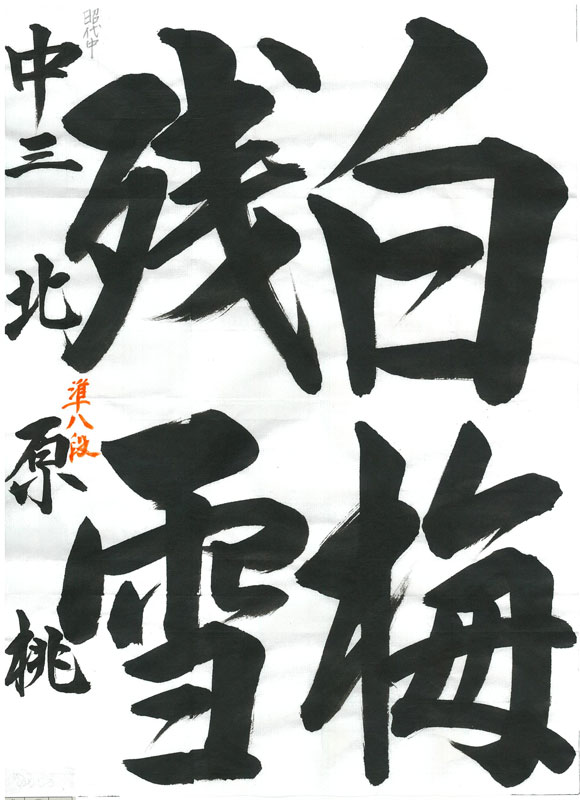 白梅
残雪
中三 北原桃
準八段
昭代中